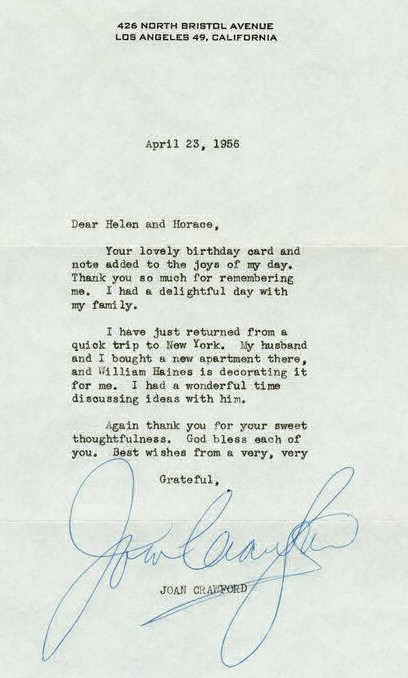 426 NORTH BRISTOL AVENUE
LOS ANGELES 49, CALIFORNIA
April 23, 1956
Dear Helen and Horace,
Your lovely birthday card and
note added to the joys of my day.
Thank you so much for remembering
me. I had a delightful day with
my family.
I have just returned from a
quick trip to New York. My husband
and I bought a new apartment there,
and William Haines is decorating it
for me. I had a wonderful time
discussing ideas with him.
Again thank you for your sweet
thoughtfulness. God bless each of
you. Best wishes from a very, very
Grateful,
Joan Crawford
JOAN CRAWFORD